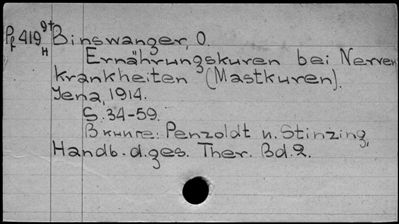 Pf 419 9+ Binswanger, O.
H
Ernährungskuren bei Nerven
krankheiten (Mastkuren).
Jena, 1914.
S. 34-59.
В книге: Penzoldt u. Stinzing,
Handb. d. ges. Ther. Bd. 2.